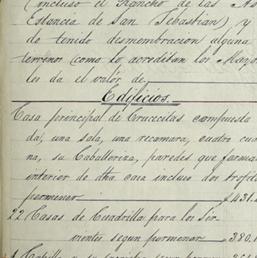 (incluso el Rancho de las
Estancia de San Sebastian) y
de tenido desmembracion alguna
terrenos (como lo acreditan los
les da el valor de
Edificios.
Casa principal de Crucecitas compuesta
da, una sala, una recamara, cuatro cua
na, su Caballeriza, paredes que forman
interior de dha casa incluso dos trojes
pormenor $431.
22 Casas de Cuadrilla para los Sir
vientes segun pormenor 380.